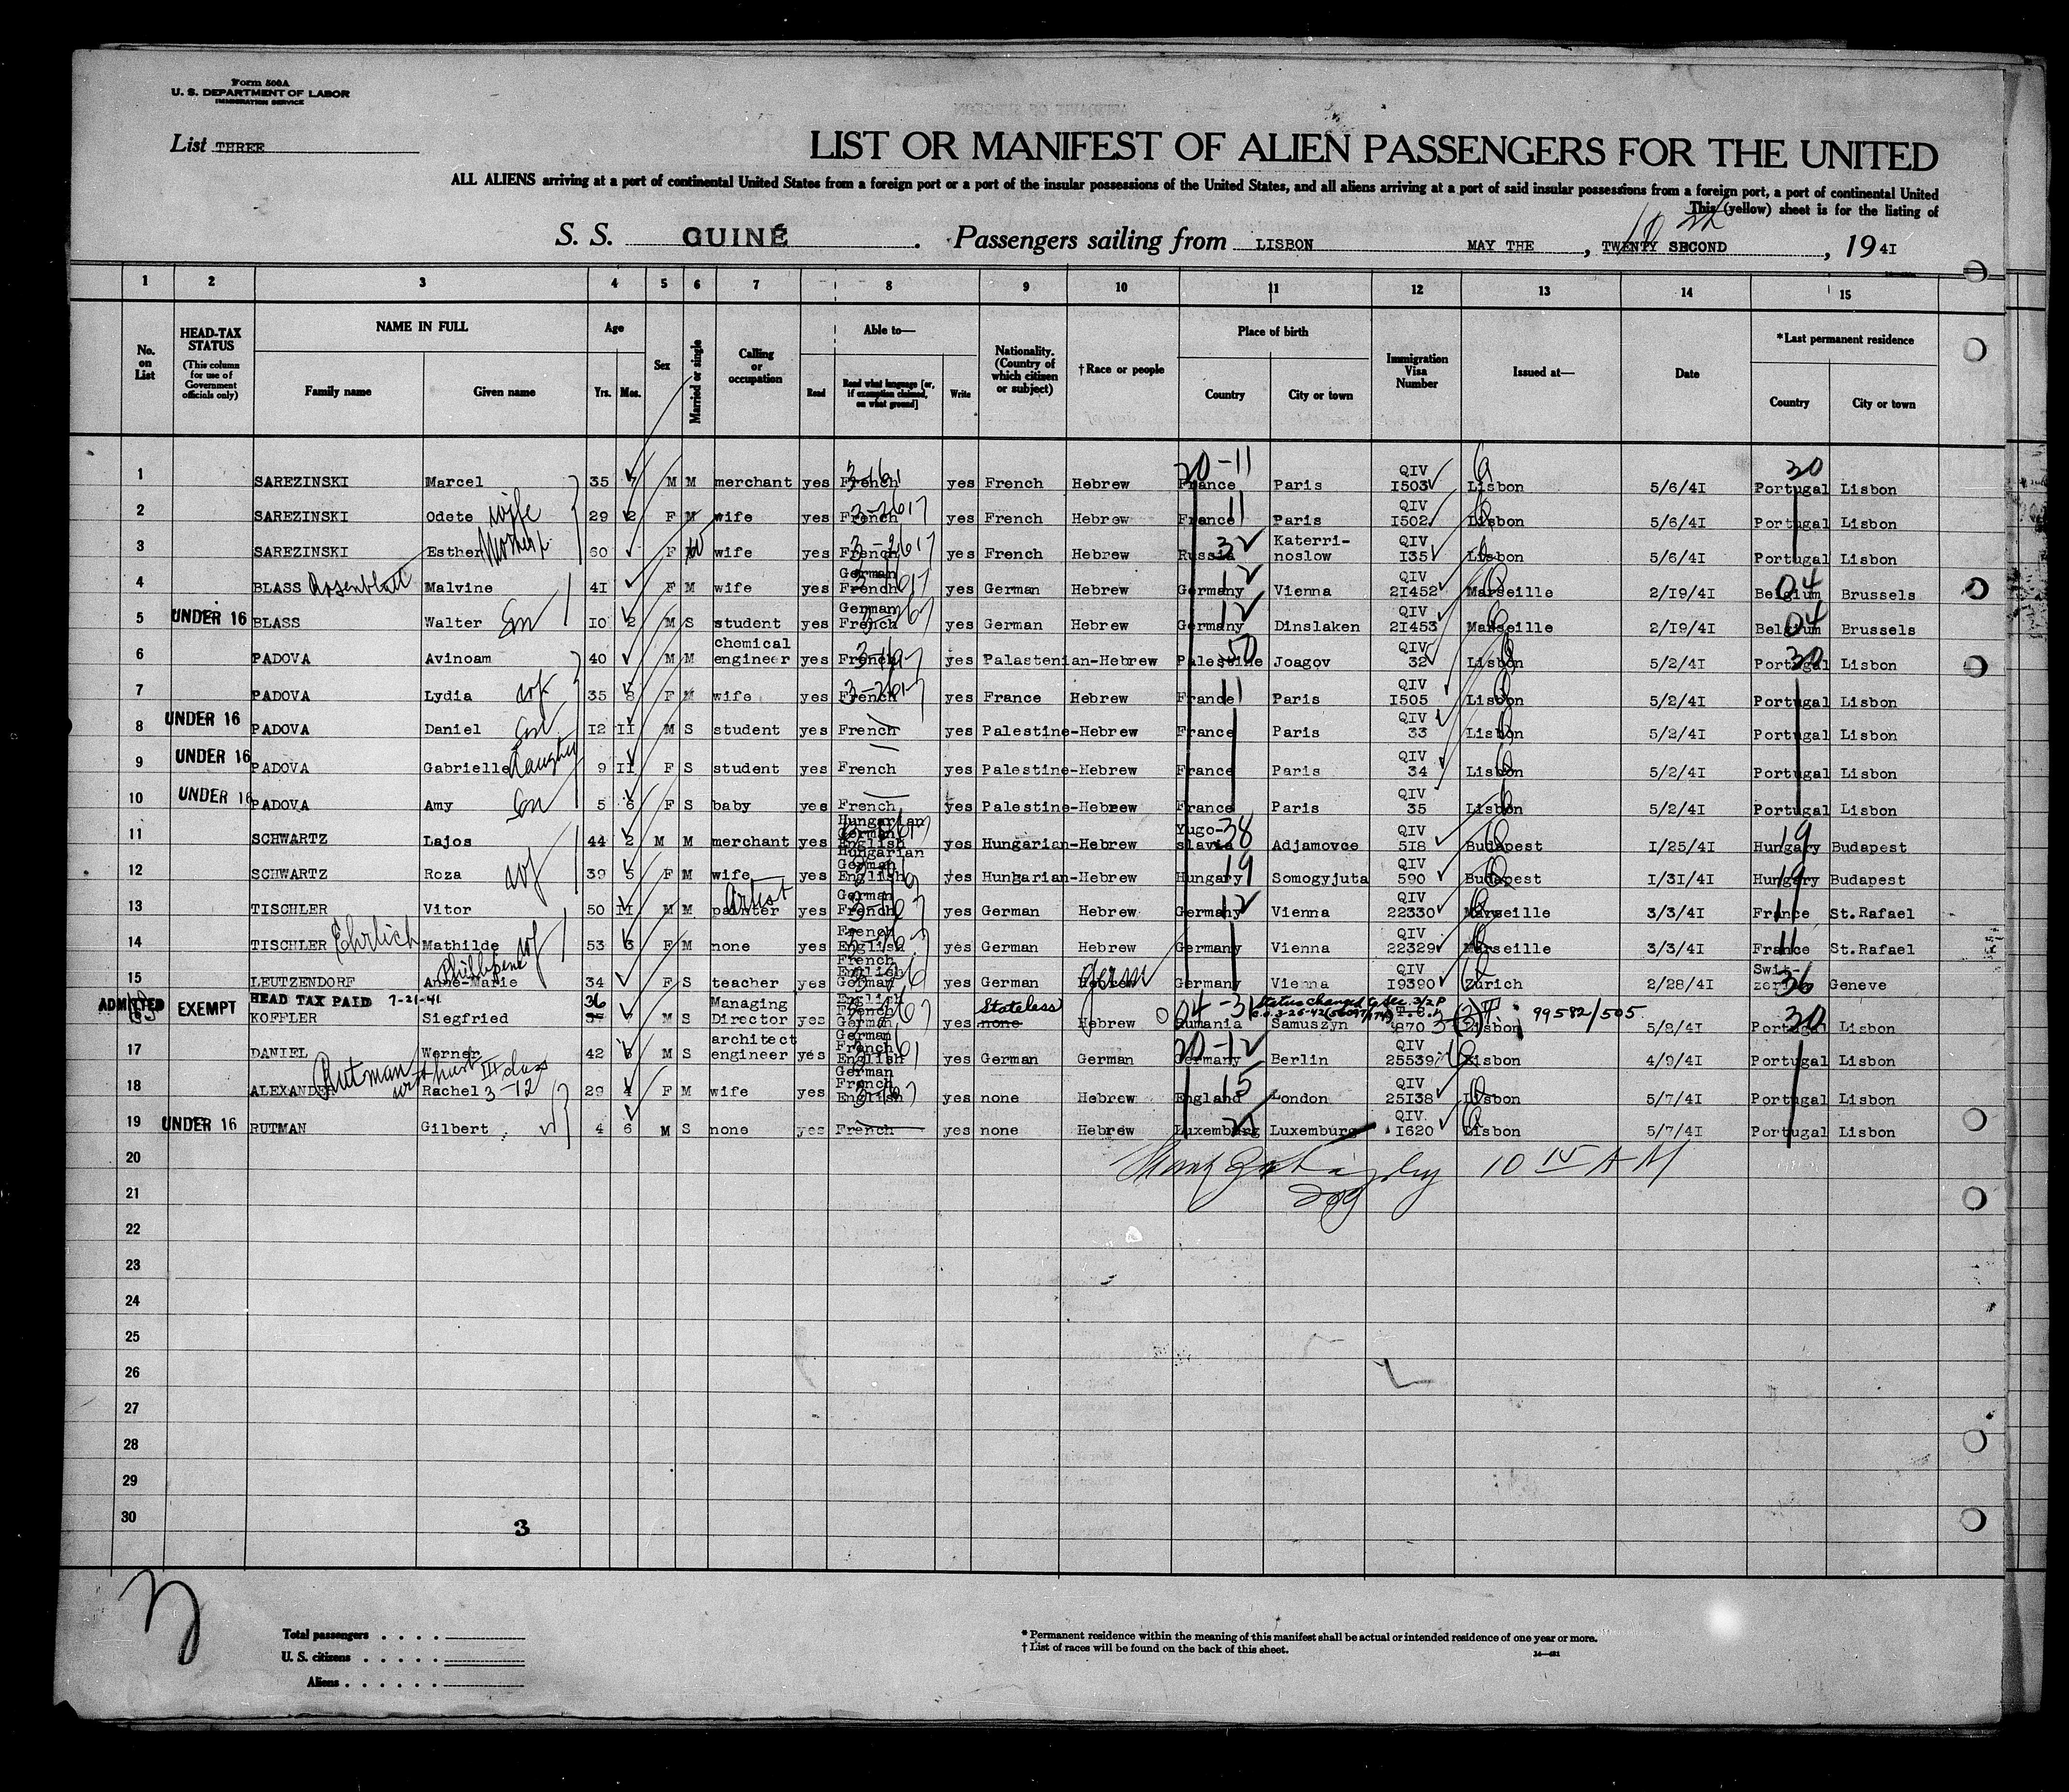 Form 500A
U. S. DEPARTMENT OF LABOR
IMMIGRATION SERVICE
List THREE
LIST OR MANIFEST OF ALIEN PASSENGERS FOR THE UNITED
ALL ALIENS arriving at a port of continental United States from a foreign port or a port of the insular possessions of the United States, and all aliens arriving at a port of said insular possessions from a foreign port, a port of continental United
This (yellow) sheet is for the listing of
S. S. GUINÉ . Passengers sailing from LISBON MAY THE , TWENTY SECOND , 19 41
1 2 3 4 5 6 7 8 9 10 11 12 13 14 15
No. on List
HEAD-TAX STATUS
(This column for use of Government officials only)
NAME IN FULL
Family name Given name
Age
Yrs. Mos.
Sex
Married or single
Calling or occupation
Able to—
Read
Read what language [or, if exemption claimed, on what ground]
Write
Nationality. (Country of which citizen or subject)
†Race or people
Place of birth
Country City or town
Immigration Visa Number
Issued at—
Date
*Last permanent residence
Country City or town
1 SAREZINSKI Marcel 35 7 M M merchant yes French yes French Hebrew France Paris QIV I503 Lisbon 5/6/41 Portugal Lisbon
2 SAREZINSKI Odete wife 29 2 F M wife yes French yes French Hebrew France Paris QIV I502 Lisbon 5/6/41 Portugal Lisbon
3 SAREZINSKI Esther Mother 60 F wife yes French yes French Hebrew Russia Katerri-noslow QIV I35 Lisbon 5/6/41 Portugal Lisbon
4 BLASS Rosenblatt Malvine 41 F M wife yes German French yes German Hebrew Germany Vienna QIV 21452 Marseille 2/19/41 Belgium Brussels
5 UNDER 16 BLASS Walter Son 10 2 M S student yes German French yes German Hebrew Germany Dinslaken QIV 21453 Marseille 2/19/41 Belgium Brussels
6 PADOVA Avinoam 40 M M chemical engineer yes French yes Palastenian-Hebrew Palestine Joagov QIV 32 Lisbon 5/2/41 Portugal Lisbon
7 PADOVA Lydia wf 35 8 F M wife yes French yes France Hebrew France Paris QIV I505 Lisbon 5/2/41 Portugal Lisbon
8 UNDER 16 PADOVA Daniel Son 12 11 M S student yes French yes Palestine-Hebrew France Paris QIV 33 Lisbon 5/2/41 Portugal Lisbon
9 UNDER 16 PADOVA Gabrielle Daughter 9 11 F S student yes French yes Palestine-Hebrew France Paris QIV 34 Lisbon 5/2/41 Portugal Lisbon
10 UNDER 16 PADOVA Amy Son 5 6 F S baby yes French yes Palestine-Hebrew France Paris QIV 35 Lisbon 5/2/41 Portugal Lisbon
11 SCHWARTZ Lajos 44 2 M M merchant yes Hungarian German English yes Hungarian-Hebrew Yugo-slavia Adjamovce QIV 518 Budapest 1/25/41 Hungary Budapest
12 SCHWARTZ Roza wf 39 5 F M wife yes Hungarian German English yes Hungarian-Hebrew Hungary Somogyjuta QIV 590 Budapest 1/31/41 Hungary Budapest
13 TISCHLER Vitor 50 11 M M painter Artist yes German French yes German Hebrew Germany Vienna QIV 22330 Marseille 3/3/41 France St.Rafael
14 TISCHLER Ehrlich Mathilde wf 53 3 F M none yes French English yes German Hebrew Germany Vienna QIV 22329 Marseille 3/3/41 France St.Rafael
15 LEUTZENDORF Anne-Marie Philippine 34 F S teacher yes French English German yes German Hebrew Germ Germany Vienna QIV I9390 Zurich 2/28/41 Swit-zerland Geneve
ADMITTED EXEMPT HEAD TAX PAID 7-21-41 KOFFLER Siegfried 36 37 M S Managing Director yes English French German yes Stateless none Hebrew Rumania Samuszyn 870 Lisbon 99582/505 5/8/41 Portugal Lisbon
Status changed to Sec. 3/2
17 DANIEL Werner 42 6 M S architect engineer yes German French English yes German German Germany Berlin QIV 25539 Lisbon 4/9/41 Portugal Lisbon
18 ALEXANDER Rutman Rachel III class 3-12 29 4 F M wife yes German French English yes none Hebrew England London QIV 25138 Lisbon 5/7/41 Portugal Lisbon
19 UNDER 16 RUTMAN Gilbert 4 6 M S none yes French yes none Hebrew Luxemburg Luxemburg QIV I620 Lisbon 5/7/41 Portugal Lisbon
20 10 15 AM
21
22
23
24
25
26
27
28
29
30
3
Total passengers
U. S. citizens
Aliens
* Permanent residence within the meaning of this manifest shall be actual or intended residence of one year or more.
† List of races will be found on the back of this sheet.